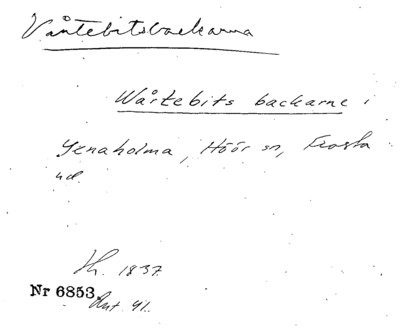 Vårtebitsbackarna
Wårtebits backarne i
Yxnaholma, Höör sn, Frosta
hd.
Th. 1837.
Nr 6853.
Ant. 41.